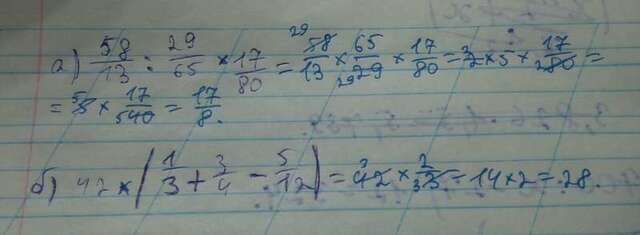 а) 58/13 : 29/65 × 17/80 = 58/13 × 65/29 × 17/80 = 2 × 5 × 17/80 =
= 5 × 17/40 = 17/8.
б) 42 × (1/3 + 3/4 − 5/12) = 42 × 2/3 = 14 × 2 = 28.